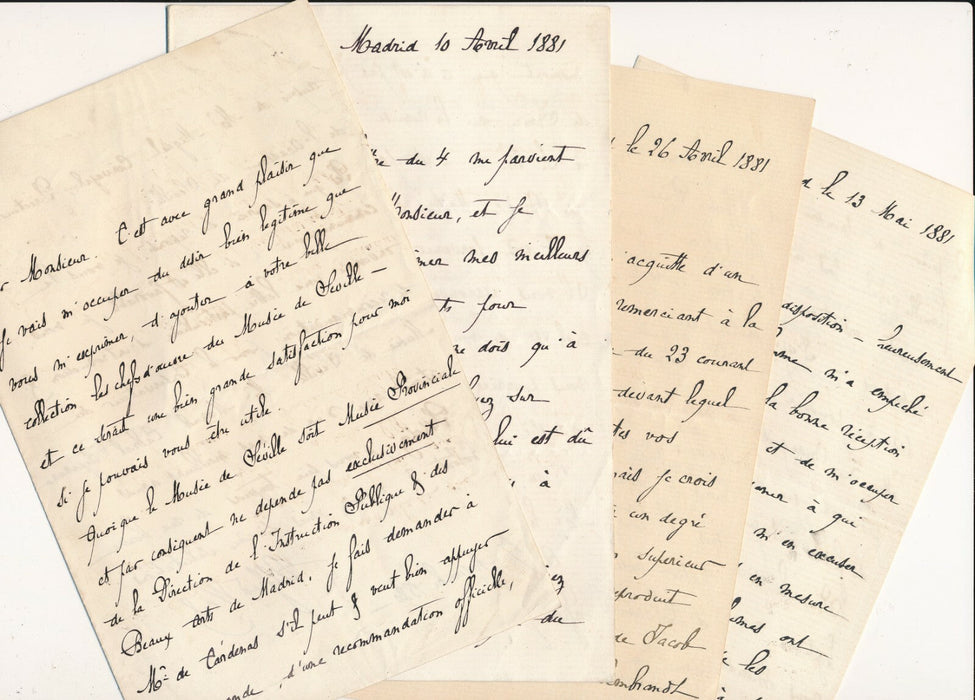 Monsieur. C'est avec grand plaisir que
je vais m'occuper du desir bien legitime que
vous m'exprimer, d'ajouter à votre belle
collection les chefs d'œuvre du Musée de Séville —
et ce serait une bien grande satisfaction pour moi
si je pouvais vous être utile.
Quoique le Musée de Séville soit Musée Provinciale
et par consiguent ne depende pas exclusivement
de la Direction de l'Instruction Publique & des
Beaux Arts de Madrid, je fais demander à
Mr. de Cárdenas s'il peut & veut bien appuyer
d'une recommandation officielle,
Madrid 10 Avril 1881
du 4 me parvient
Monsieur, et je
mes meilleurs
pour
dois qu'à
sur
lui est dû
à
du
le 26 Avril 1881
acquitte d'un
remerciant à la
du 23 courant
devant lequel
vos
mais je crois
un degré
superieur
reproduit
de Jacob
Rembrandt
le 13 Mai 1881
disposition — heureusement
m'a empeché
la bonne réception
et de m'occuper
à qui
m'en excuser
en mesure
ont
les